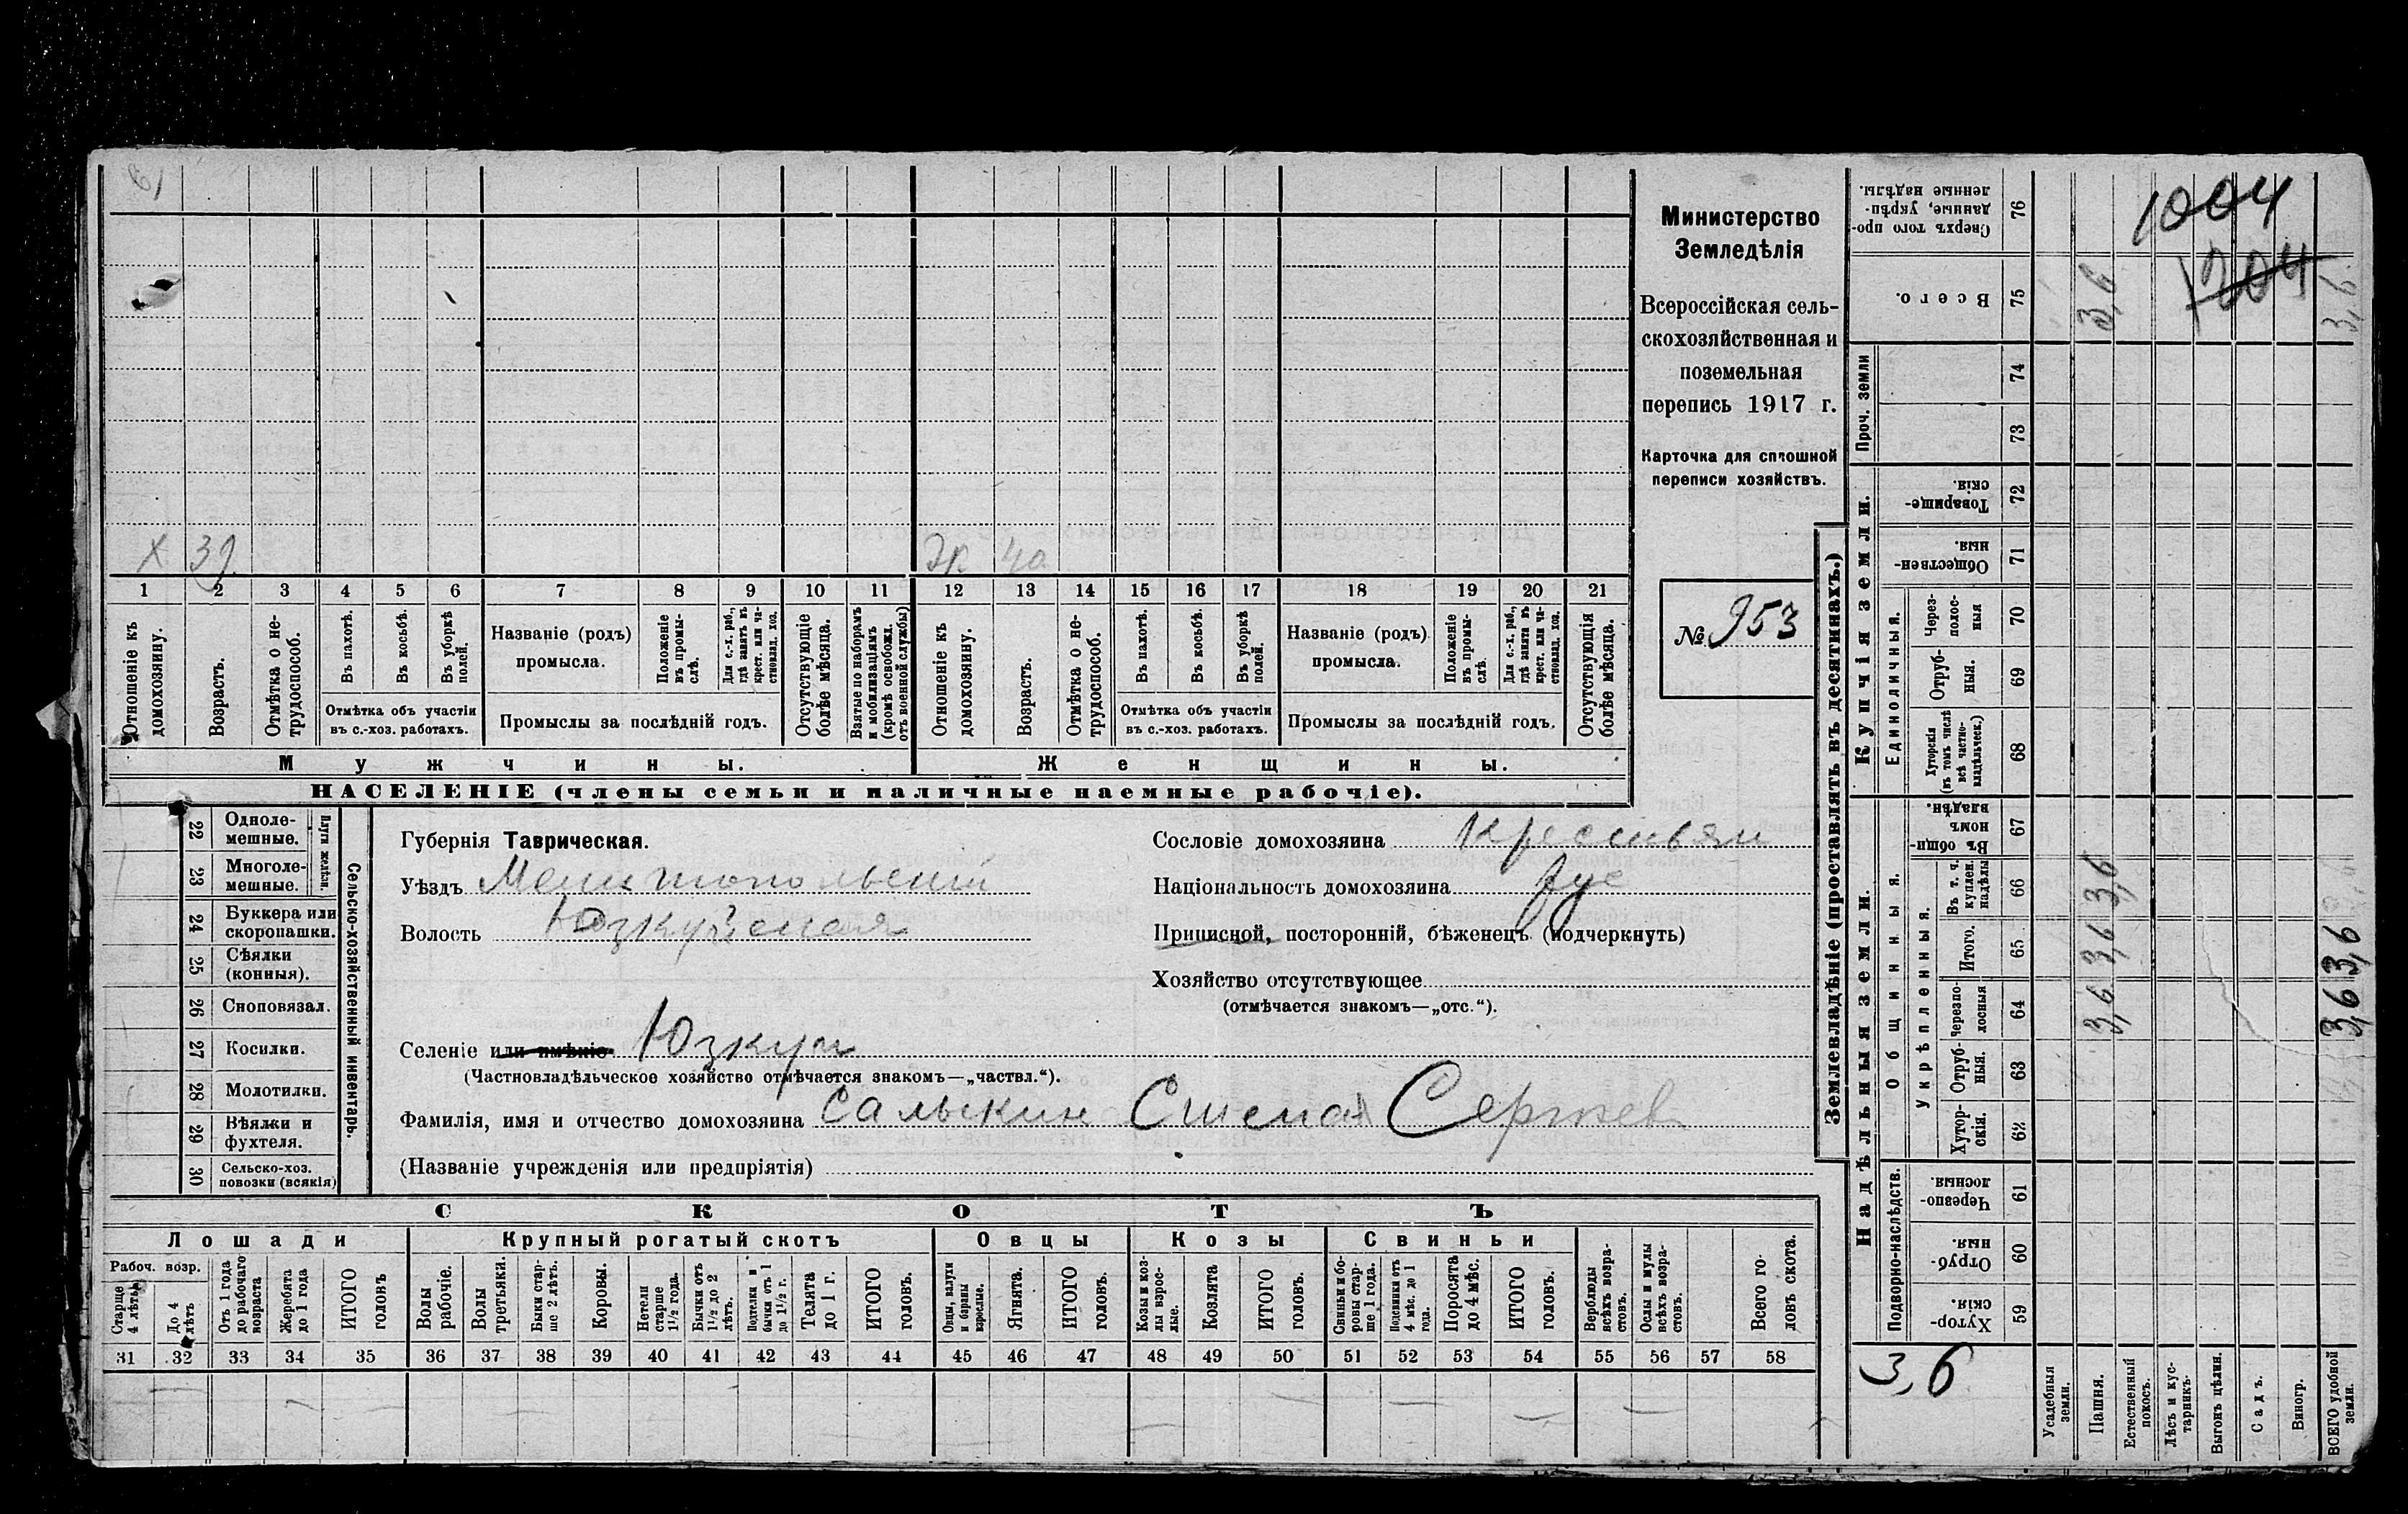 Министерство
Земледѣлія
Всероссійская сель-
скохозяйственная и
поземельная
перепись 1917 г.
Карточка для сплошной
переписи хозяйствъ.
№ 953
1004
1204
х 39
Эк 40
1 2 3 4 5 6 7 8 9 10 11 12 13 14 15 16 17 18 19 20 21
Отношеніе къ домохозяину.
Возрастъ.
Отмѣтка о не-трудоспособ.
Въ пахотѣ.
Въ косьбѣ.
Въ уборкѣ полей.
Отмѣтка объ участіи
въ с.-хоз. работахъ.
Названіе (родъ)
промысла.
Положеніе въ промы-слѣ.
Для с.-х. раб., гдѣ занятъ въ крест. или ча-стновлад. хоз.
Промыслы за послѣдній годъ.
Отсутствующіе болѣе мѣсяца.
Взятые по наборамъ и мобилизаціямъ (кромѣ освобожд. отъ военной службы)
Отношеніе къ домохозяину.
Возрастъ.
Отмѣтка о не-трудоспособ.
Въ пахотѣ.
Въ косьбѣ.
Въ уборкѣ полей.
Отмѣтка объ участіи
въ с.-хоз. работахъ.
Названіе (родъ)
промысла.
Положеніе въ промы-слѣ.
Для с.-х. раб., гдѣ заняты въ крест. или ча-стновлад. хоз.
Промыслы за послѣдній годъ.
Отсутствующія болѣе мѣсяца.
Мужчины.
Женщины.
НАСЕЛЕНІЕ (члены семьи и наличные наемные рабочіе).
Сельско-хозяйственный инвентарь.
Плуги желѣзн.
22 Одноле-мешные.
23 Многоле-мешные.
24 Буккера или скоропашки.
25 Сѣялки (конныя).
26 Сноповязал.
27 Косилки.
28 Молотилки.
29 Вѣялки и фухтеля.
30 Сельско-хоз. повозки (всякія)
Губернія Таврическая.
Уѣздъ Мелитопольскій
Волость Юзкуйская
Селеніе или имѣніе Юзкуи
(Частновладѣльческое хозяйство отмѣчается знакомъ—„частвл.“).
Фамилія, имя и отчество домохозяина Салыкин Степан Сергеев
(Названіе учрежденія или предпріятія)
Сословіе домохозяина Крестьян
Національность домохозяина рус
Приписной, посторонній, бѣженецъ (подчеркнуть)
Хозяйство отсутствующее
(отмѣчается знакомъ—„отс.“).
СКОТЪ
Лошади
Крупный рогатый скотъ
Овцы
Козы
Свиньи
Рабоч. возр.
Старше 4 лѣтъ
До 4 лѣтъ
Отъ 1 года до рабочаго возраста
Жеребята до 1 года
ИТОГО головъ
Волы рабочіе.
Волы третьяки.
Быки стар-ше 2 лѣтъ.
Коровы.
Нетели старше 1½ года.
Бычки отъ 1½ до 2 лѣтъ.
Подтелки и бычки отъ 1 до 1½ г.
Телята до 1 г.
ИТОГО головъ.
Овцы, валухи и бараны взрослые.
Ягнята.
ИТОГО головъ.
Козы и коз-лы взрос-лые.
Козлята
ИТОГО головъ.
Свиньи и бо-ровы стар-ше 1 года.
Подсвинки отъ 4 мѣс. до 1 года.
Поросята до 4 мѣс.
ИТОГО головъ.
Верблюды всѣхъ возра-стовъ.
Ослы и мулы всѣхъ возра-стовъ.
Всего го-ловъ скота.
31 32 33 34 35 36 37 38 39 40 41 42 43 44 45 46 47 48 49 50 51 52 53 54 55 56 57 58
Землевладѣніе (проставлять въ десятинахъ.)
Надѣльныя земли.
Купчія земли.
Проч. земли
Подворно-наслѣдств.
Общинныя.
Укрѣпленныя.
Единоличныя.
Сверхъ того про-данные, укрѣп-ленные надѣлы. 76
Всего. 75 3,6 3,6
74
73
Товарище-скія. 72
Обществен-ныя. 71
Через-полос-ныя 70
Отруб-ныя. 69
Хуторскія (въ томъ числѣ всѣ частно-владѣльческ.) 68
Въ общин-номъ владѣн. 67
Въ т. ч. куплен. надѣлы 66 3,6
Итого. 65 3,6 3,6
Черезпо-лосныя 64 3,6 3,6
Отруб-ныя. 63
Хутор-скія. 62
Черезпо-лосныя. 61
Отруб-ныя. 60
Хутор-скія. 59
3,6
Усадебныя земли.
Пашня.
Естественный покосъ.
Лѣсъ и кус-тарникъ.
Выгонъ цѣлин.
Садъ.
Виногр.
ВСЕГО удобной земли.